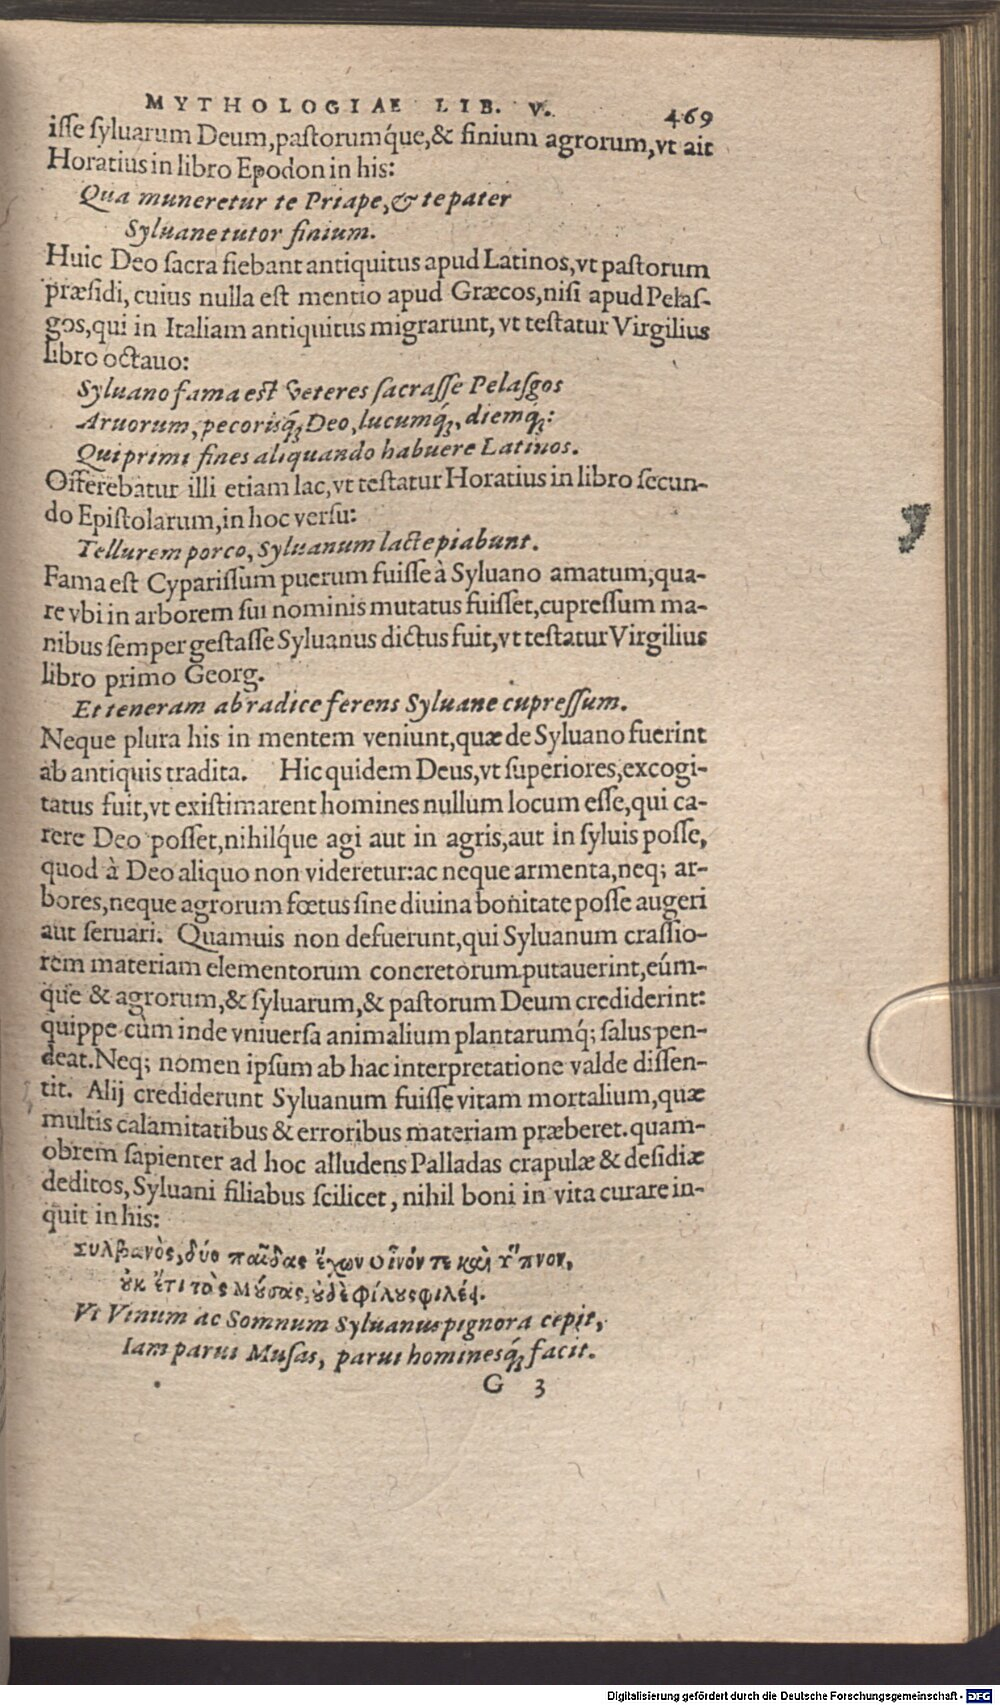 MYTHOLOGIAE LIB. V. 469
isse syluarum Deum,pastorumq́ue,& finium agrorum,vt ait
Horatius in libro Epodon in his:
Qua muneretur te Priape,& te pater
Syluane tutor finium.
Huic Deo sacra fiebant antiquitus apud Latinos,vt pastorum
præsidi, cuius nulla est mentio apud Græcos,nisi apud Pelas-
gos,qui in Italiam antiquitus migrarunt, vt testatur Virgilius
libro octauo:
Syluano fama est veteres sacrasse Pelasgos
Aruorum, pecorisq́; Deo, lucumq́;, diemq́;:
Qui primi fines aliquando habuere Latinos.
Offerebatur illi etiam lac,vt testatur Horatius in libro secun-
do Epistolarum,in hoc versu:
Tellurem porco, Syluanum lacte piabunt.
Fama est Cyparissum puerum fuisse à Syluano amatum,qua-
re vbi in arborem sui nominis mutatus fuisset,cupressum ma-
nibus semper gestasse Syluanus dictus fuit,vt testatur Virgilius
libro primo Georg.
Et teneram ab radice ferens Syluane cupressum.
Neque plura his in mentem veniunt,quæ de Syluano fuerint
ab antiquis tradita. Hic quidem Deus,vt superiores,excogi-
tatus fuit,vt existimarent homines nullum locum esse,qui ca-
rere Deo posset,nihilq́ue agi aut in agris,aut in syluis posse,
quod à Deo aliquo non videretur:ac neque armenta,neq; ar-
bores,neque agrorum fœtus sine diuina bonitate posse augeri
aut seruari. Quamuis non defuerunt,qui Syluanum crassio-
rem materiam elementorum concretorum putauerint,eúm-
que & agrorum,& syluarum,& pastorum Deum crediderint:
quippe cùm inde vniuersa animalium plantarumq́; salus pen-
deat.Neq; nomen ipsum ab hac interpretatione valde dissen-
tit. Alij crediderunt Syluanum fuisse vitam mortalium,quæ
multis calamitatibus & erroribus materiam præberet.quam-
obrem sapienter ad hoc alludens Palladas crapulæ & desidiæ
deditos, Syluani filiabus scilicet, nihil boni in vita curare in-
quit in his:
Συλβανὸς, δύο παῖδας ἔχων οἶνόν τε καὶ ὕπνον,
οὐκ ἔτι τὰς Μούσας, οὐδὲ φίλους φιλέει.
Vt Vinum ac Somnum Syluanus pignora cepit,
Iam parui Musas, parui hominesq́; facit.
G 3
Digitalisierung gefördert durch die Deutsche Forschungsgemeinschaft - DFG